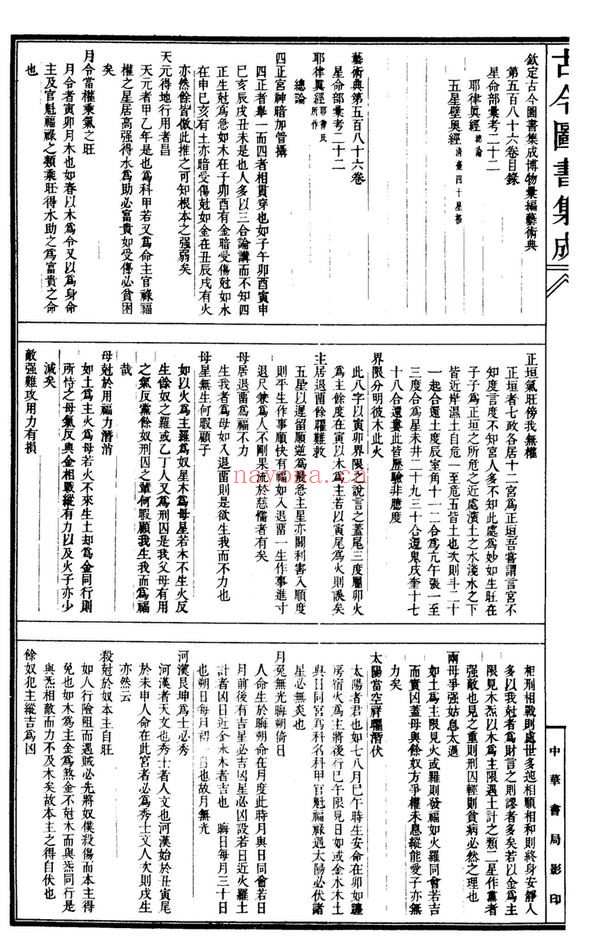 古今圖書集成
欽定古今圖書集成博物彙編藝術典
第五百八十六卷目錄
星命部彙考二十二
耶律眞經 總論
五星壁奥經
藝術典第五百八十六卷
星命部彙考二十二
耶律眞經
總論
四正宮神暗加管攝
四正者舉一而四者相貫穿也如子午卯酉寅申
巳亥辰戌丑未是也人多以三合論講而不知四
正生尅爲急如木在子卯酉有金暗受傷尅如水
在申巳亥有土亦暗受傷尅如金在丑辰戌有火
亦然餘皆倣此推之可知根本之强弱矣
天元得地行用者昌
天元者甲乙年是也爲科甲若又爲命主官祿福
權之星居高强得水爲助必富貴如受傷必貧困
矣
月令當權乘氣之旺
月令者寅卯月木也如春以木爲令又以爲身命
主及官魁福祿之類乘旺得水助之爲富貴之命
也
正垣氣旺傍我無權
正垣者七政各居十二宮爲正垣吾嘗謂言宮不
知度言度不知宮人多不知此處爲妙如生旺在
子子爲正垣之所危之近處濱土之水淺水之下
皆近岸濕土自危一至危五皆土也次則斗二十
一起合還土度辰室角十一二合爲亢午張一至
三度合爲星未井二十九三十合還鬼戌奎十七
十八合還婁此皆歷驗非臆度
界限分明彼木此火
此八字以寅卯界限分說言之蓋尾三度屬卯火
爲主餘度在寅以木爲主若以寅尾爲火則誤矣
主居退留餘曜難救
五星以遲留順逆爲緩急主星亦關利害入順度
則平生作事順快有幅如入退留一生作事進寸
退尺兼爲人不剛果流於慈懦者有矣
母居退留爲福不力
生我者爲母如入退留則是欲生我而不力也
母星無生何暇顧子
如以火爲主羅爲奴星木爲母星若木不生火反
生餘奴之羅或乙丁人又爲刑囚是我父母有用
之氣反黨餘奴刑囚之輩何暇顧我生我而爲福
哉
母尅於用福力潛消
如土爲主火爲母若火不來生土却爲金同行則
所恃之母氣反與金相戰縱有力以及火子亦少
減矣
敵强難攻用力有損
相刑相戰則處世多迍相順相和則終身安靜人
多以我尅者爲財言之則謬者多矣若以金爲主
限見木炁以木爲主限遇土計之類二星作黨者
强敵也見之重則刑囚輕則貧病必然之理也
兩母爭强姑息太過
如土爲主限見火或羅則發福如火羅同會若吉
而實凶蓋母與餘奴方爭權未息縱能愛子亦無
力矣
太陽當空祥曜潛伏
太陽者君也如七八月巳午時生安命在卯如躔
房宿火爲主將後行巳午限見日如或金水木土
與日同宮爲科名科甲官魁福祿遇太陽必伏諸
星必無炎也
月免無光晦朔倚日
人命生於晦朔命在月度此時月與日同會若日
月前後有吉星必吉凶星必凶設若日近火羅土
計者凶日近金水木者吉也 晦日每月三十日
也朔日每月初一日也故月無光
河漢艮坤爲士必秀
河漢者天文也秀士者人文也河漢始於丑寅尾
於未申人命在此宮者必爲秀士文人次則戌生
亦然云
殺尅於奴本主自旺
如人行險阻而遇賊必先將奴僕殺傷而本主得
免也如木爲主金爲煞金不尅木而與炁同行是
與炁相敵而力不及木矣故本主之得自伏也
餘奴犯主縱吉爲凶
中華書局影印
nayona.cn